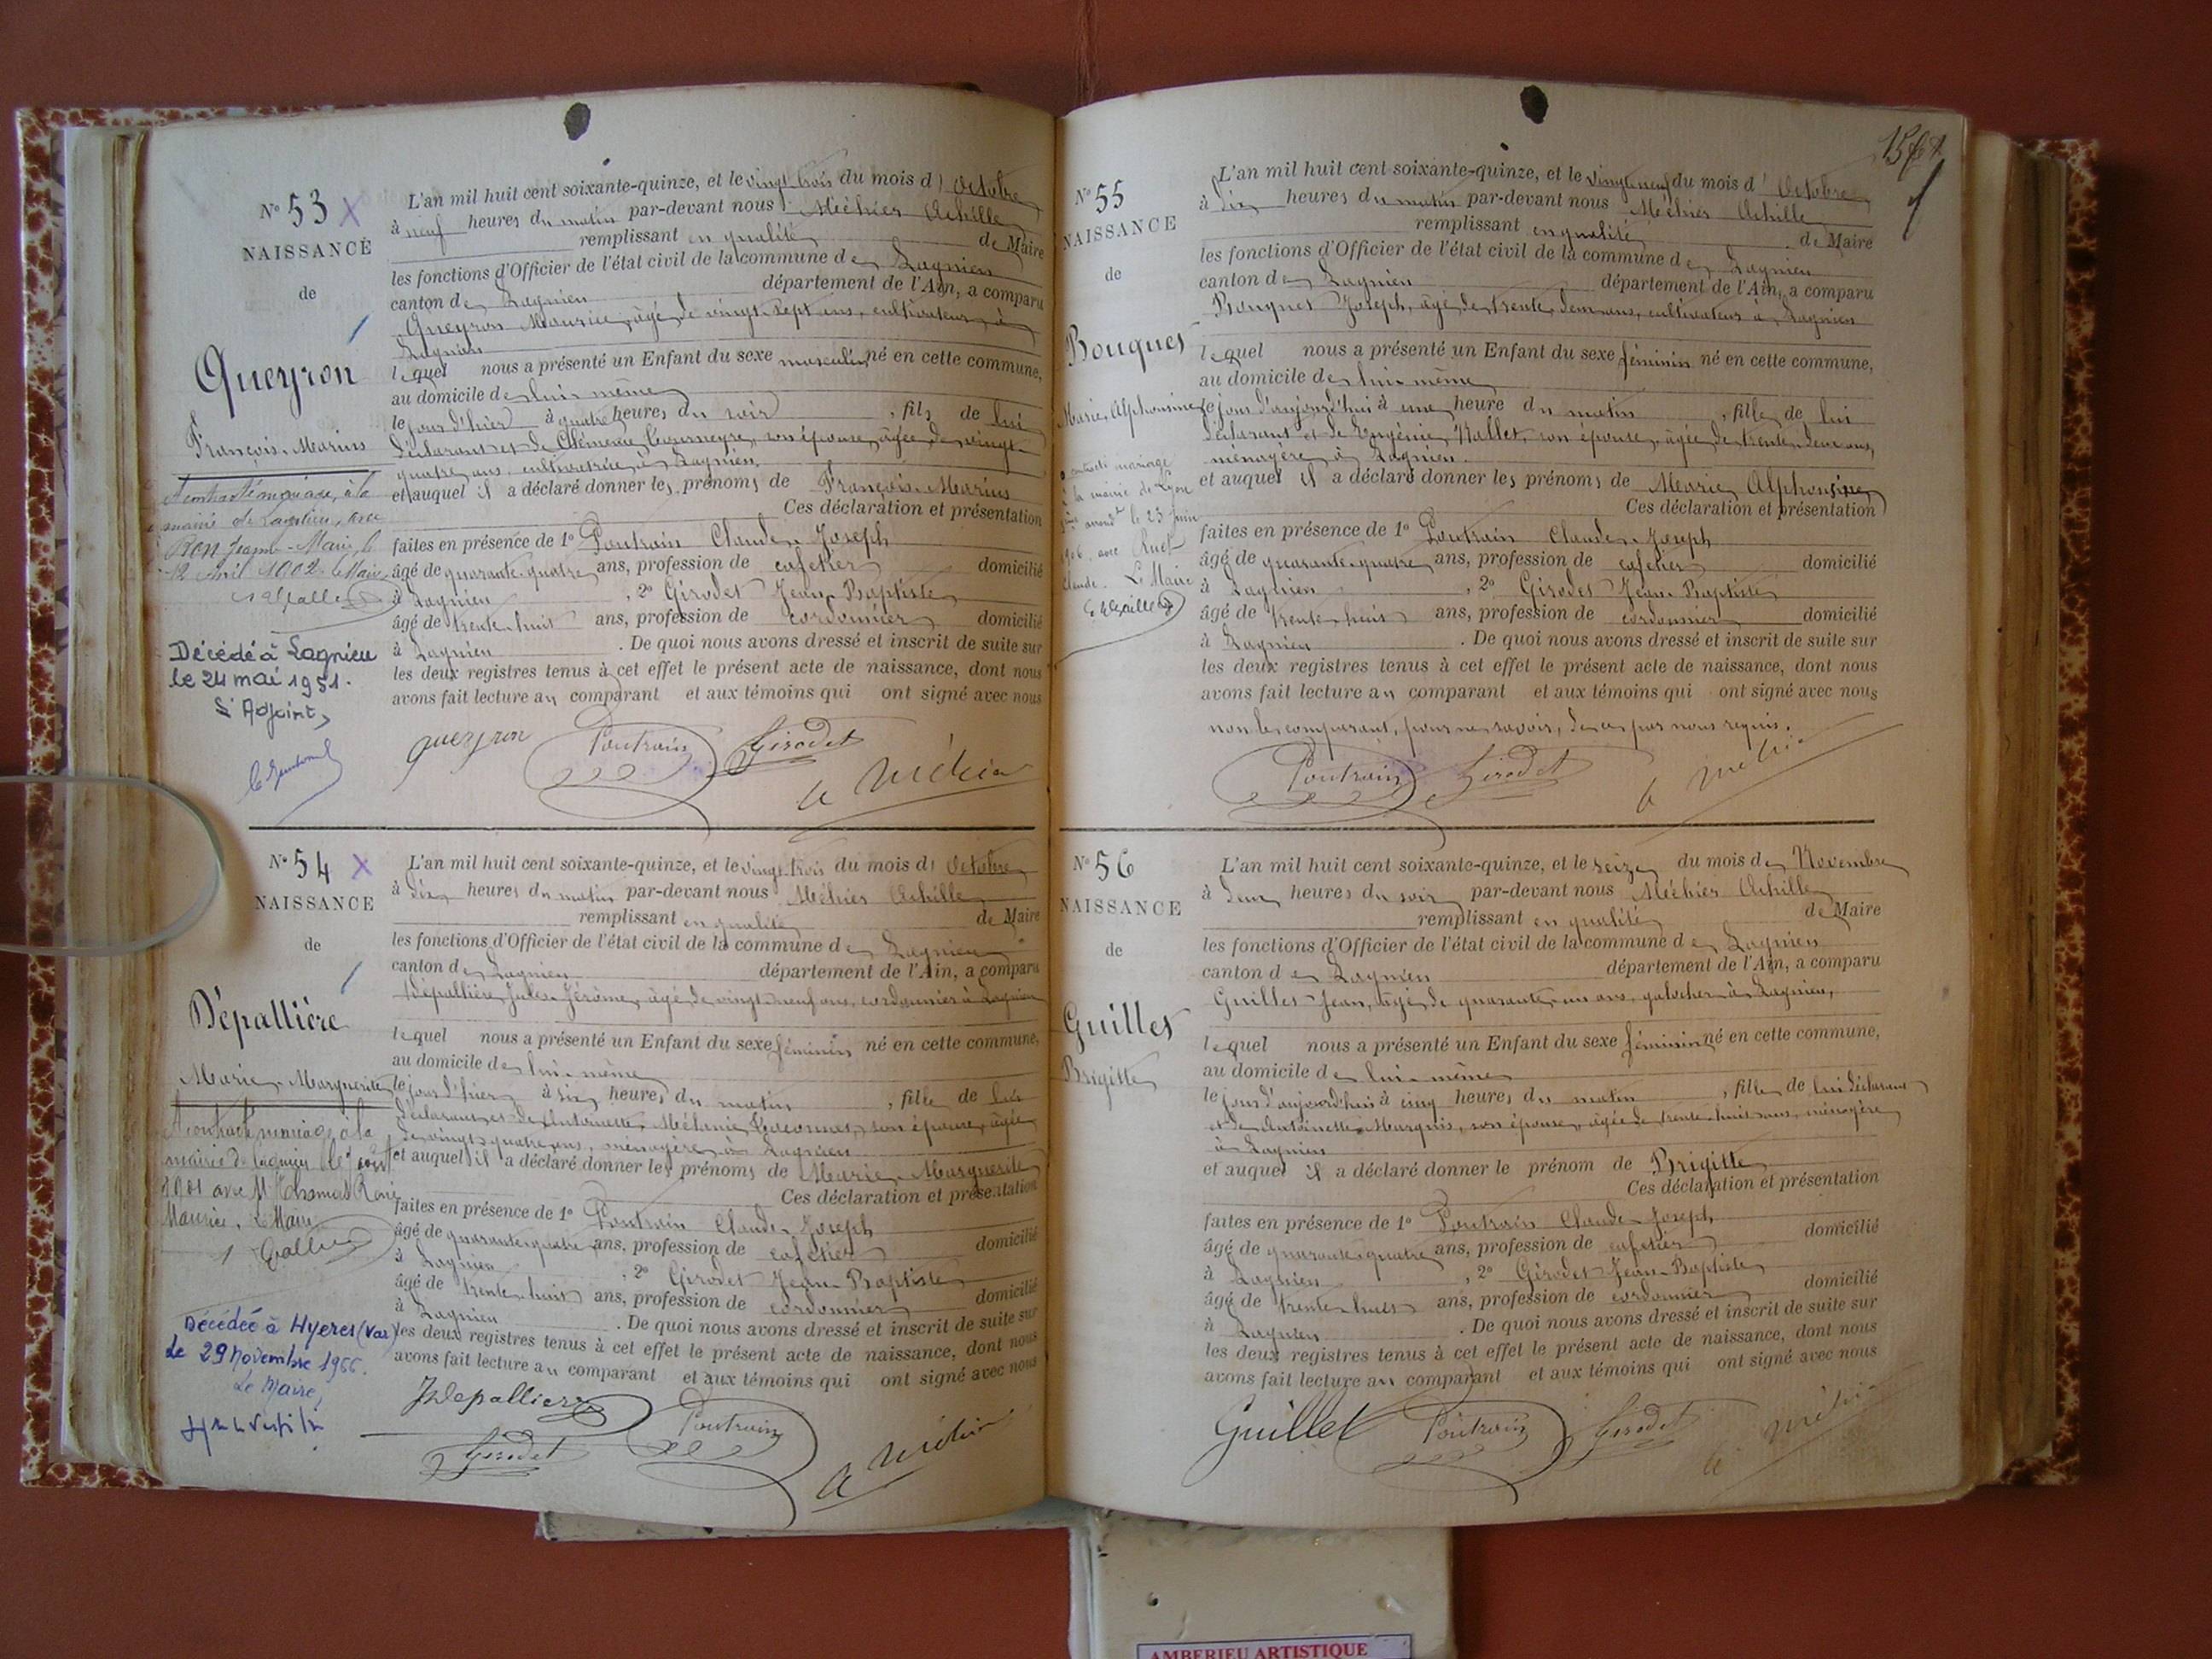 N° 53 X
NAISSANCE
de
Queyron
François-Marius
A contracté mariage, à la
mairie de Lagnieu, avec
Ron Jeanne-Marie, le
12 avril 1902. Le Maire
Décédé à Lagnieu
le 24 mai 1951.
L'Adjoint,
L'an mil huit cent soixante-quinze, et le vingt trois du mois d' Octobre
à neuf heures du matin par-devant nous Méhier Achille
remplissant en qualité de Maire
les fonctions d'Officier de l'état civil de la commune de Lagnieu
canton de Lagnieu département de l'Ain, a comparu
Queyron Maurice, âgé de vingt-sept ans, cultivateur à
Lagnieu
lequel nous a présenté un Enfant du sexe masculin né en cette commune,
au domicile de lui-même
le jour d'hier à quatre heures du soir, fils de lui
déclarant et de Clémence, son épouse, âgée de vingt-
quatre ans, cultivatrice à Lagnieu.
et auquel il a déclaré donner les prénoms de François-Marius
Ces déclaration et présentation
faites en présence de 1° Poutrain Claude-Joseph
âgé de quarante-quatre ans, profession de cafetier domicilié
à Lagnieu, 2° Girodet Jean-Baptiste
âgé de trente-huit ans, profession de cordonnier domicilié
à Lagnieu. De quoi nous avons dressé et inscrit de suite sur
les deux registres tenus à cet effet le présent acte de naissance, dont nous
avons fait lecture au comparant et aux témoins qui ont signé avec nous
queyron Poutrain Girodet
A Méhier
N° 54 X
NAISSANCE
de
Dépallière
Marie-Marguerite
A contracté mariage à la
mairie de Lagnieu le août
1901 avec M. Thomas René
Maurice. Le Maire
Décédée à Hyères (Var)
le 29 novembre 1966.
Le Maire,
L'an mil huit cent soixante-quinze, et le vingt-trois du mois d' Octobre
à dix heures du matin par-devant nous Méhier Achille
remplissant en qualité de Maire
les fonctions d'Officier de l'état civil de la commune de Lagnieu
canton de Lagnieu département de l'Ain, a comparu
Dépallière Jules-Jérôme, âgé de vingt-neuf ans, cordonnier à Lagnieu
lequel nous a présenté un Enfant du sexe féminin né en cette commune,
au domicile de lui-même
le jour d'hier à six heures du matin, fille de lui
déclarant et de Antoinette Mélanie, son épouse, âgée
de vingt-quatre ans, ménagère à Lagnieu
et auquel il a déclaré donner les prénoms de Marie-Marguerite
Ces déclaration et présentation
faites en présence de 1° Poutrain Claude-Joseph
âgé de quarante-quatre ans, profession de cafetier domicilié
à Lagnieu, 2° Girodet Jean-Baptiste
âgé de trente-huit ans, profession de cordonnier domicilié
à Lagnieu. De quoi nous avons dressé et inscrit de suite sur
les deux registres tenus à cet effet le présent acte de naissance, dont nous
avons fait lecture au comparant et aux témoins qui ont signé avec nous
JDepalliere Poutrain
Girodet A Méhier
N° 55
NAISSANCE
de
Bouquet
Marie, Alphonsine
contracté mariage
à la mairie de Lyon
arrondt le 23 Juin
1906 avec Ruet
Claude. Le Maire
L'an mil huit cent soixante-quinze, et le vingt-neuf du mois d' Octobre
à dix heures du matin par-devant nous Méhier Achille
remplissant en qualité de Maire
les fonctions d'Officier de l'état civil de la commune de Lagnieu
canton de Lagnieu département de l'Ain, a comparu
Bouquet Joseph, âgé de trente-deux ans, cultivateur à Lagnieu
lequel nous a présenté un Enfant du sexe féminin né en cette commune,
au domicile de lui-même
le jour d'aujourd'hui à une heure du matin, fille de lui
déclarant et de Eugénie Hallet, son épouse, âgée de trente-deux ans,
ménagère à Lagnieu.
et auquel il a déclaré donner les prénoms de Marie Alphonsine
Ces déclaration et présentation
faites en présence de 1° Poutrain Claude-Joseph
âgé de quarante-quatre ans, profession de cafetier domicilié
à Lagnieu, 2° Girodet Jean-Baptiste
âgé de trente-huit ans, profession de cordonnier domicilié
à Lagnieu. De quoi nous avons dressé et inscrit de suite sur
les deux registres tenus à cet effet le présent acte de naissance, dont nous
avons fait lecture au comparant et aux témoins qui ont signé avec nous
non le comparant, pour ne savoir, de ce par nous requis.
Poutrain Girodet A Méhier
N° 56
NAISSANCE
de
Guillet
Brigitte
L'an mil huit cent soixante-quinze, et le seize du mois de Novembre
à deux heures du soir par-devant nous Méhier Achille
remplissant en qualité de Maire
les fonctions d'Officier de l'état civil de la commune de Lagnieu
canton de Lagnieu département de l'Ain, a comparu
Guillet Jean, âgé de quarante-un ans, galocher à Lagnieu,
lequel nous a présenté un Enfant du sexe féminin né en cette commune,
au domicile de lui-même
le jour d'aujourd'hui à cinq heures du matin, fille de lui déclarant
et de Antoinette Marquis, son épouse, âgée de trente-huit ans, ménagère
à Lagnieu
et auquel il a déclaré donner le prénom de Brigitte
Ces déclaration et présentation
faites en présence de 1° Poutrain Claude-Joseph
âgé de quarante-quatre ans, profession de cafetier domicilié
à Lagnieu, 2° Girodet Jean-Baptiste
âgé de trente-huit ans, profession de cordonnier domicilié
à Lagnieu. De quoi nous avons dressé et inscrit de suite sur
les deux registres tenus à cet effet le présent acte de naissance, dont nous
avons fait lecture au comparant et aux témoins qui ont signé avec nous
Guillet Poutrain Girodet A Méhier
AMBERIEU ARTISTIQUE